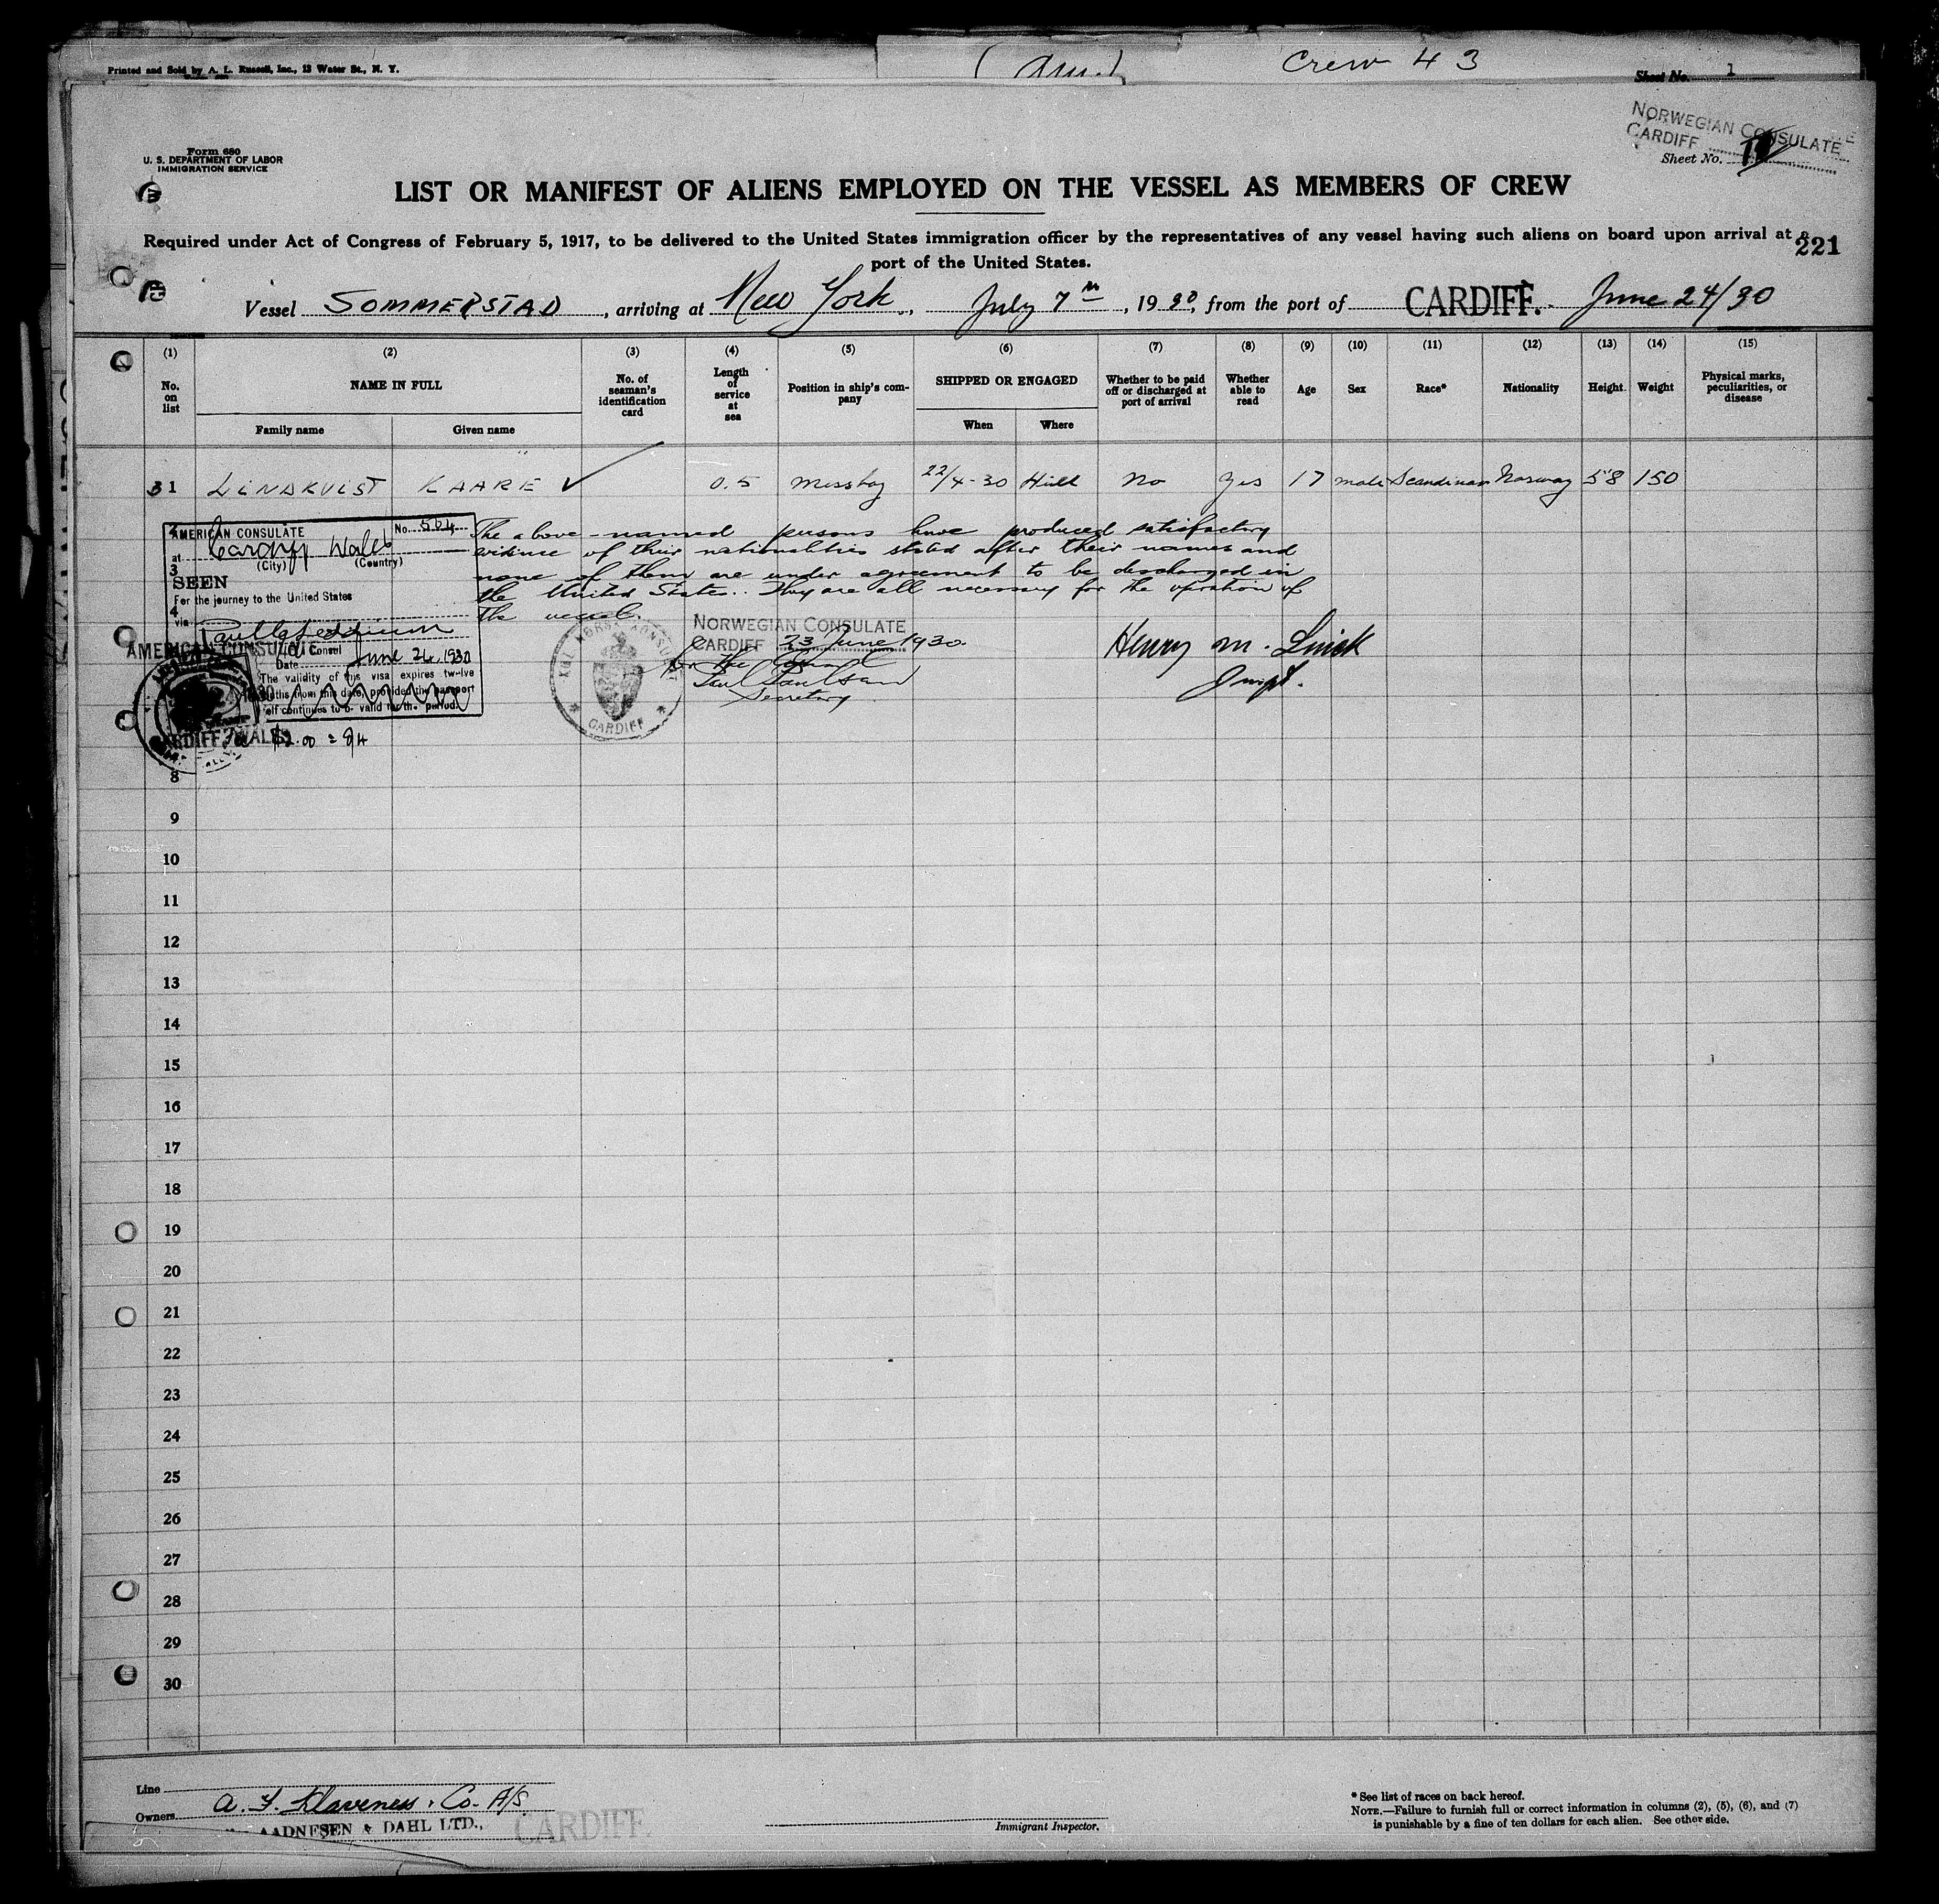 Printed and Sold by A. L. Russell, Inc., 12 Water St., N. Y.
Crew 43
Sheet No. 1
NORWEGIAN CONSULATE
CARDIFF
Sheet No.
Form 680
U. S. DEPARTMENT OF LABOR
IMMIGRATION SERVICE
LIST OR MANIFEST OF ALIENS EMPLOYED ON THE VESSEL AS MEMBERS OF CREW
Required under Act of Congress of February 5, 1917, to be delivered to the United States immigration officer by the representatives of any vessel having such aliens on board upon arrival at a
port of the United States.
221
Vessel SOMMERSTAD, arriving at New York, July 7th, 1930, from the port of CARDIFF. June 24/30
(1) (2) (3) (4) (5) (6) (7) (8) (9) (10) (11) (12) (13) (14) (15)
No. on list
NAME IN FULL
Family name
Given name
No. of seaman's identification card
Length of service at sea
Position in ship's company
SHIPPED OR ENGAGED
When
Where
Whether to be paid off or discharged at port of arrival
Whether able to read
Age
Sex
Race*
Nationality
Height
Weight
Physical marks, peculiarities, or disease
31 LINDKVIST KAARE ✓ 0.5 Messboy 22/4-30 Hull No Yes 17 male Scandinav Norway 5'8 150
The above-named persons have produced satisfactory
evidence of their nationalities stated after their names and
none of them are under agreement to be discharged in
the United States. They are all necessary for the operation of
the vessel.
AMERICAN CONSULATE No. 564
at Cardiff Wales
(City) (Country)
SEEN
For the journey to the United States
via
Consul
Date June 24, 1930
The validity of this visa expires twelve
months from this date, provided the passport
itself continues to be valid for that period.
AMERICAN CONSULATE
CARDIFF, WALES
Fee $2.00 = 8/4
KGL. NORSK KONSULAT
CARDIFF
NORWEGIAN CONSULATE
CARDIFF 23 June 1930.
For the Consul
Paul Paulsen
Secretary
Henry M.
Inspt.
2
3
4
8
9
10
11
12
13
14
15
16
17
18
19
20
21
22
23
24
25
26
27
28
29
30
Line
Owners A. F. Klaveness & Co. A/S
AADNESEN & DAHL LTD., CARDIFF
Immigrant Inspector.
* See list of races on back hereof.
NOTE.—Failure to furnish full or correct information in columns (2), (5), (6), and (7)
is punishable by a fine of ten dollars for each alien. See other side.